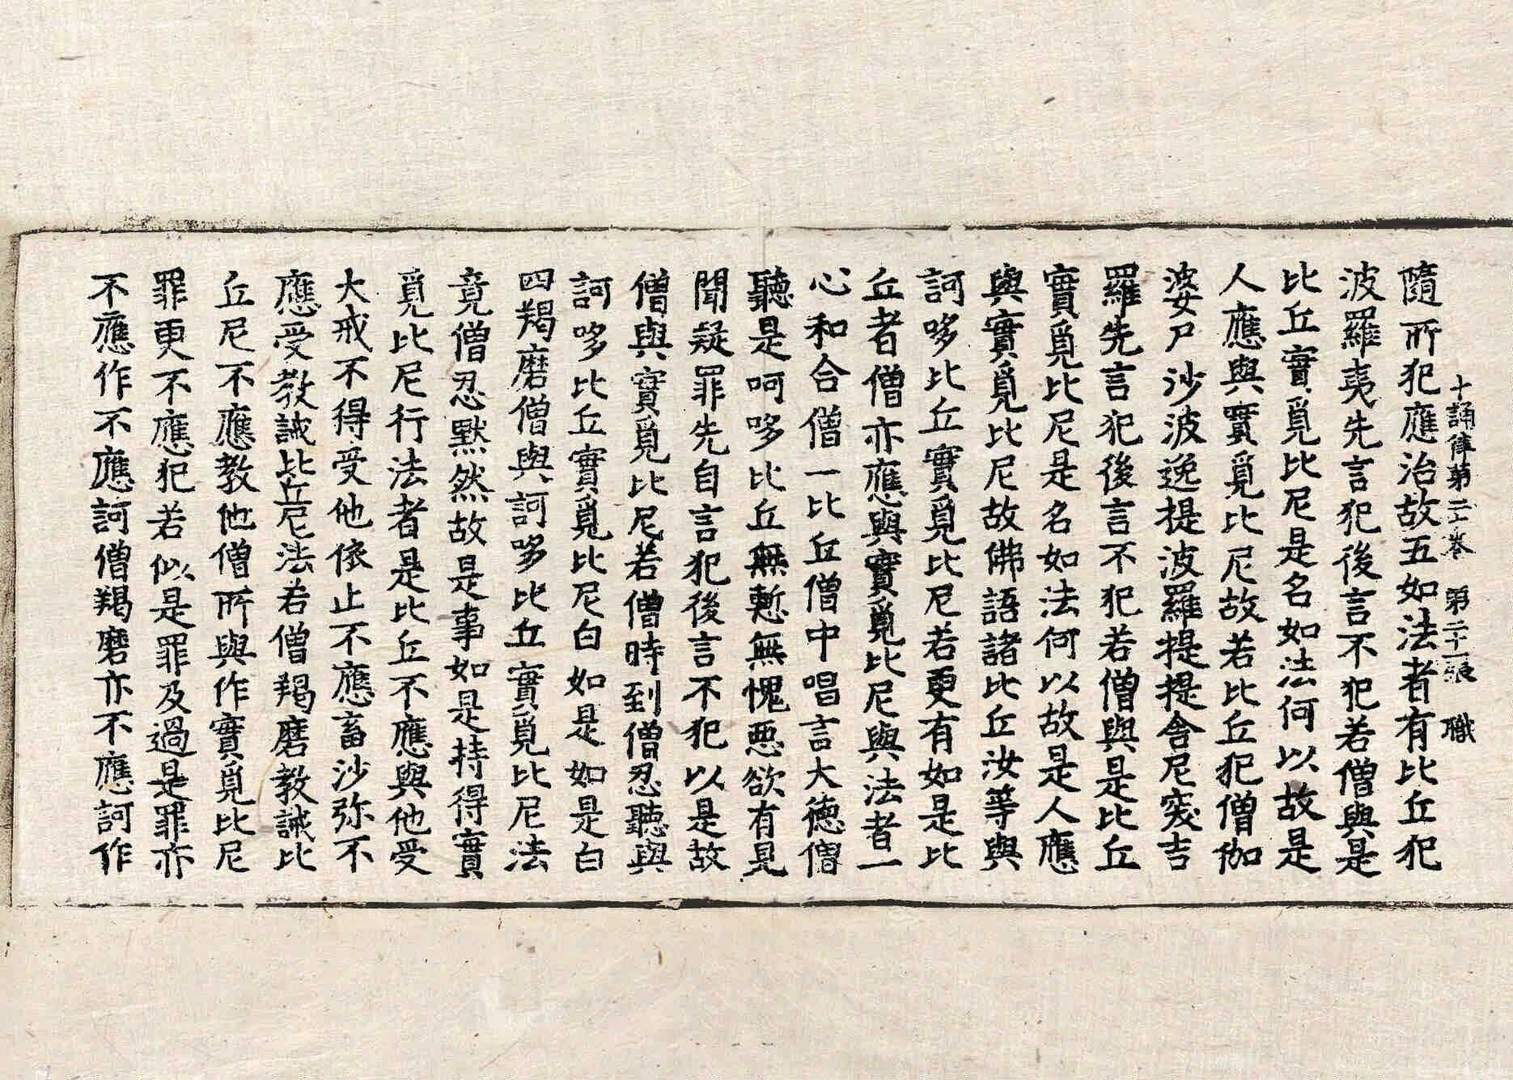 隨所犯應治故五如法者有比丘犯
十誦律第二十卷 第二十張 職
波羅夷先言犯後言不犯若僧與是
比丘實覓比尼是名如法何以故是
人應與實覓比尼故若比丘犯僧伽
婆尸沙波逸提波羅提提舍尼突吉
羅先言犯後言不犯若僧與是比丘
實覓比尼是名如法何以故是人應
與實覓比尼故佛語諸比丘汝等與
訶哆比丘實覓比尼若更有如是比
丘者僧亦應與實覓比尼與法者一
心和合僧一比丘僧中唱言大德僧
聽是呵哆比丘無慙無愧惡欲有見
聞疑罪先自言犯後言不犯以是故
僧與實覓比尼若僧時到僧忍聽與
訶哆比丘實覓比尼白如是如是白
四羯磨僧與訶哆比丘實覓比尼法
竟僧忍默然故是事如是持得實
覓比尼行法者是比丘不應與他受
大戒不得受他依止不應畜沙弥不
應受教誡比丘尼法若僧羯磨教誡比
丘尼不應教他僧所與作實覓比尼
罪更不應犯若似是罪及過是罪亦
不應作不應訶僧羯磨亦不應訶作